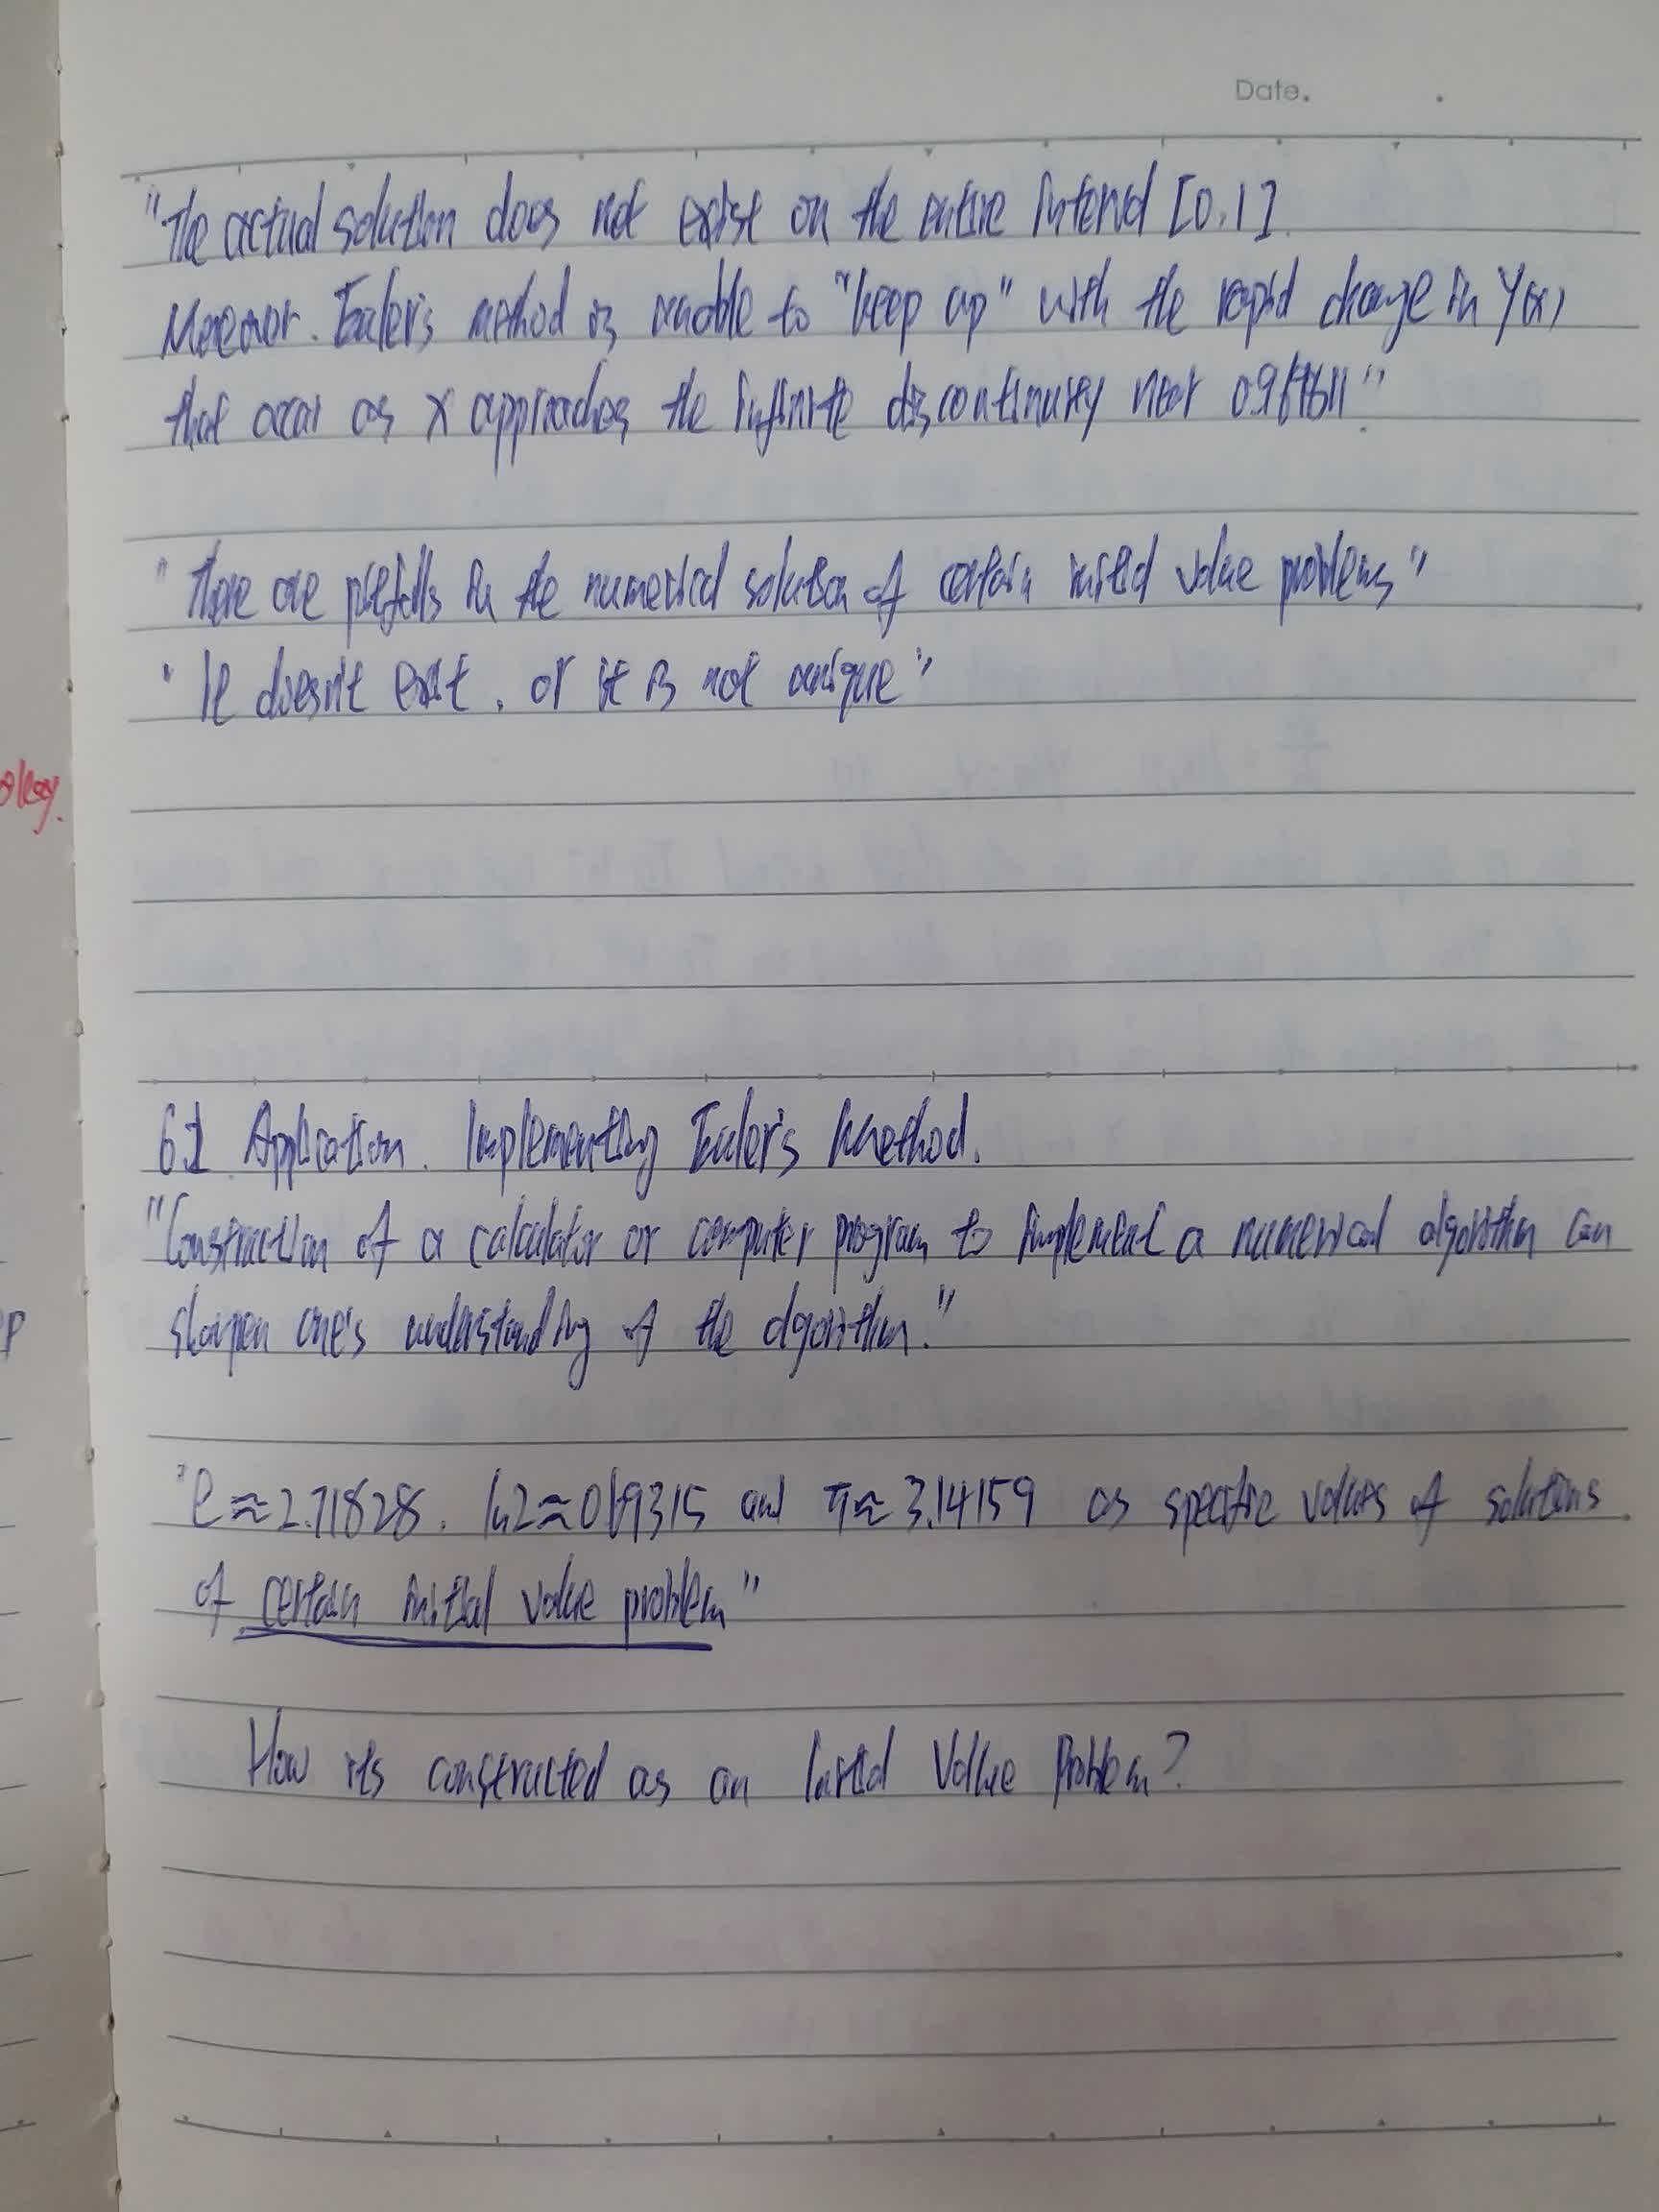 Date.
"The actual solution does not exist on the entire interval [0,1].
Moreover. Euler's method is unable to "keep up" with the rapid change in y(x)
that occur as x approaches the infinite discontinuity near 0.969811"
"There are pitfalls in the numerical solution of certain initial value problems"
"It doesn't exist, or it is not unique"
okay.
6.1 Application. Implementing Euler's Method.
"Construction of a calculator or computer program to implement a numerical algorithm can
sharpen one's understanding of the algorithm."
P
"e≈2.71828, ln2≈0.69315 and π≈3.14159 as specific values of solutions
of certain initial value problem"
How its constructed as an Initial Value Problem?